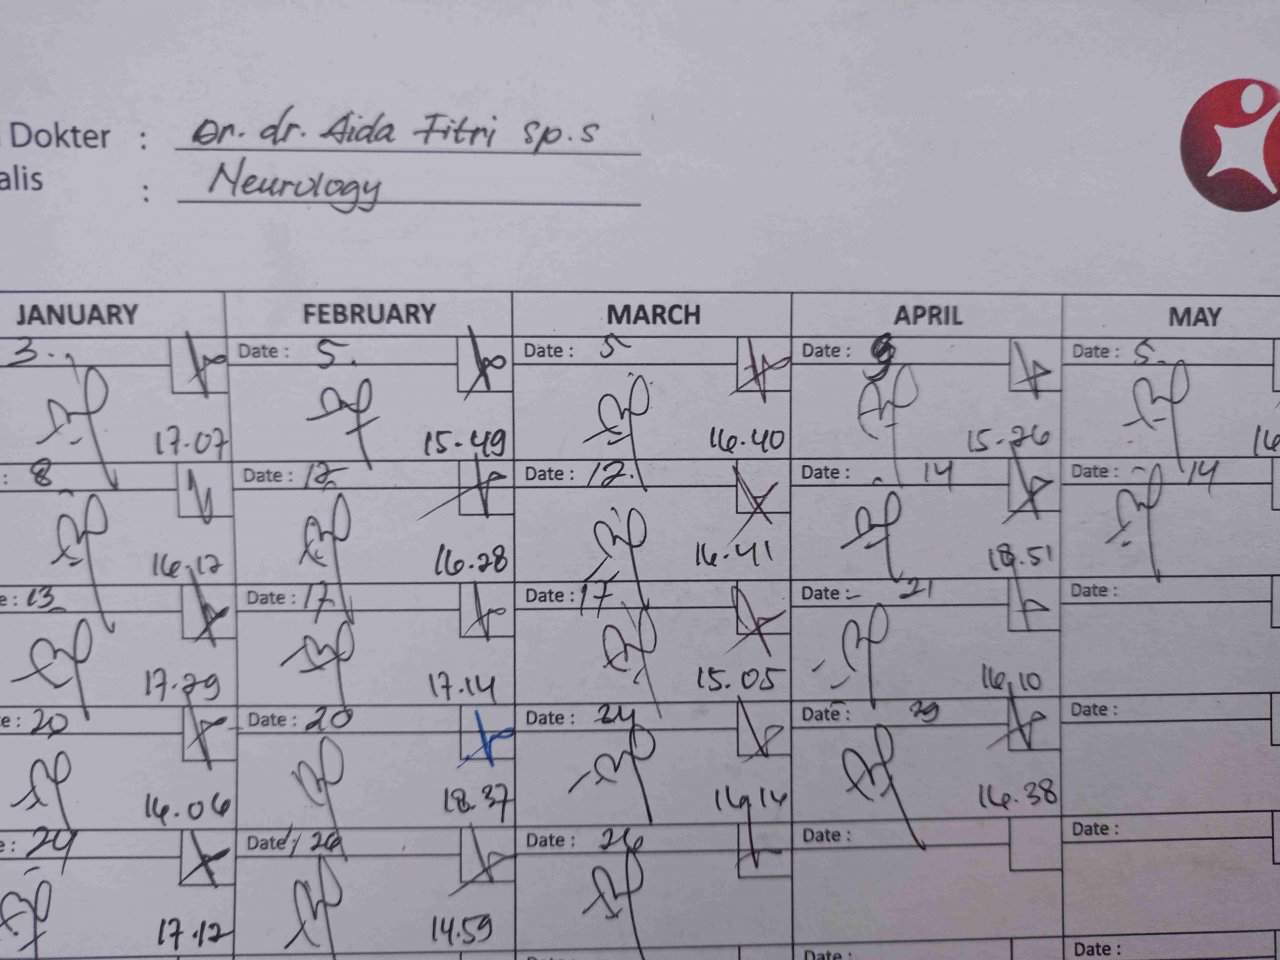 Dokter : Dr. dr. Aida Fitri Sp.s
alis : Neurology
JANUARY FEBRUARY MARCH APRIL MAY
3. Date : 5. Date : 5 Date : Date : 5.
17.07 15.49 16.40 15.26 16
: 8 Date : 12 Date : 12. Date : 14 Date : 14
16.12 16.28 16.41 18.51
e : 13 Date : 17 Date : 17 Date : 21 Date :
17.29 17.14 15.05 16.10
te : 20 Date : 20 Date : 24 Date : 29 Date :
16.06 18.37 16.14 16.38
e : 24 Date : 26 Date : 26 Date : Date :
17.12 14.59
Date : Date :